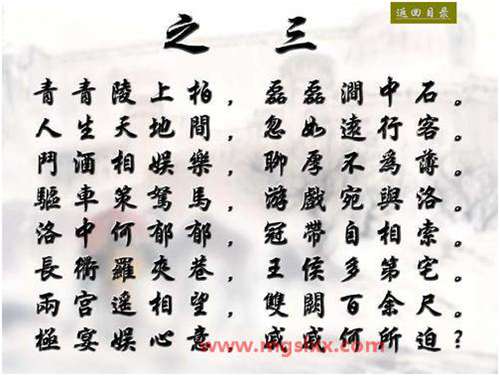 返回目录
之三
青青陵上柏,磊磊澗中石。
人生天地間,忽如遠行客。
鬥酒相娛樂,聊厚不為薄。
驅車策駑馬,游戲宛與洛。
洛中何郁郁,冠帶自相索。
長衢羅夾巷,王侯多第宅。
兩宮遙相望,雙闕百余尺。
極宴娛心意,戚戚何所迫?